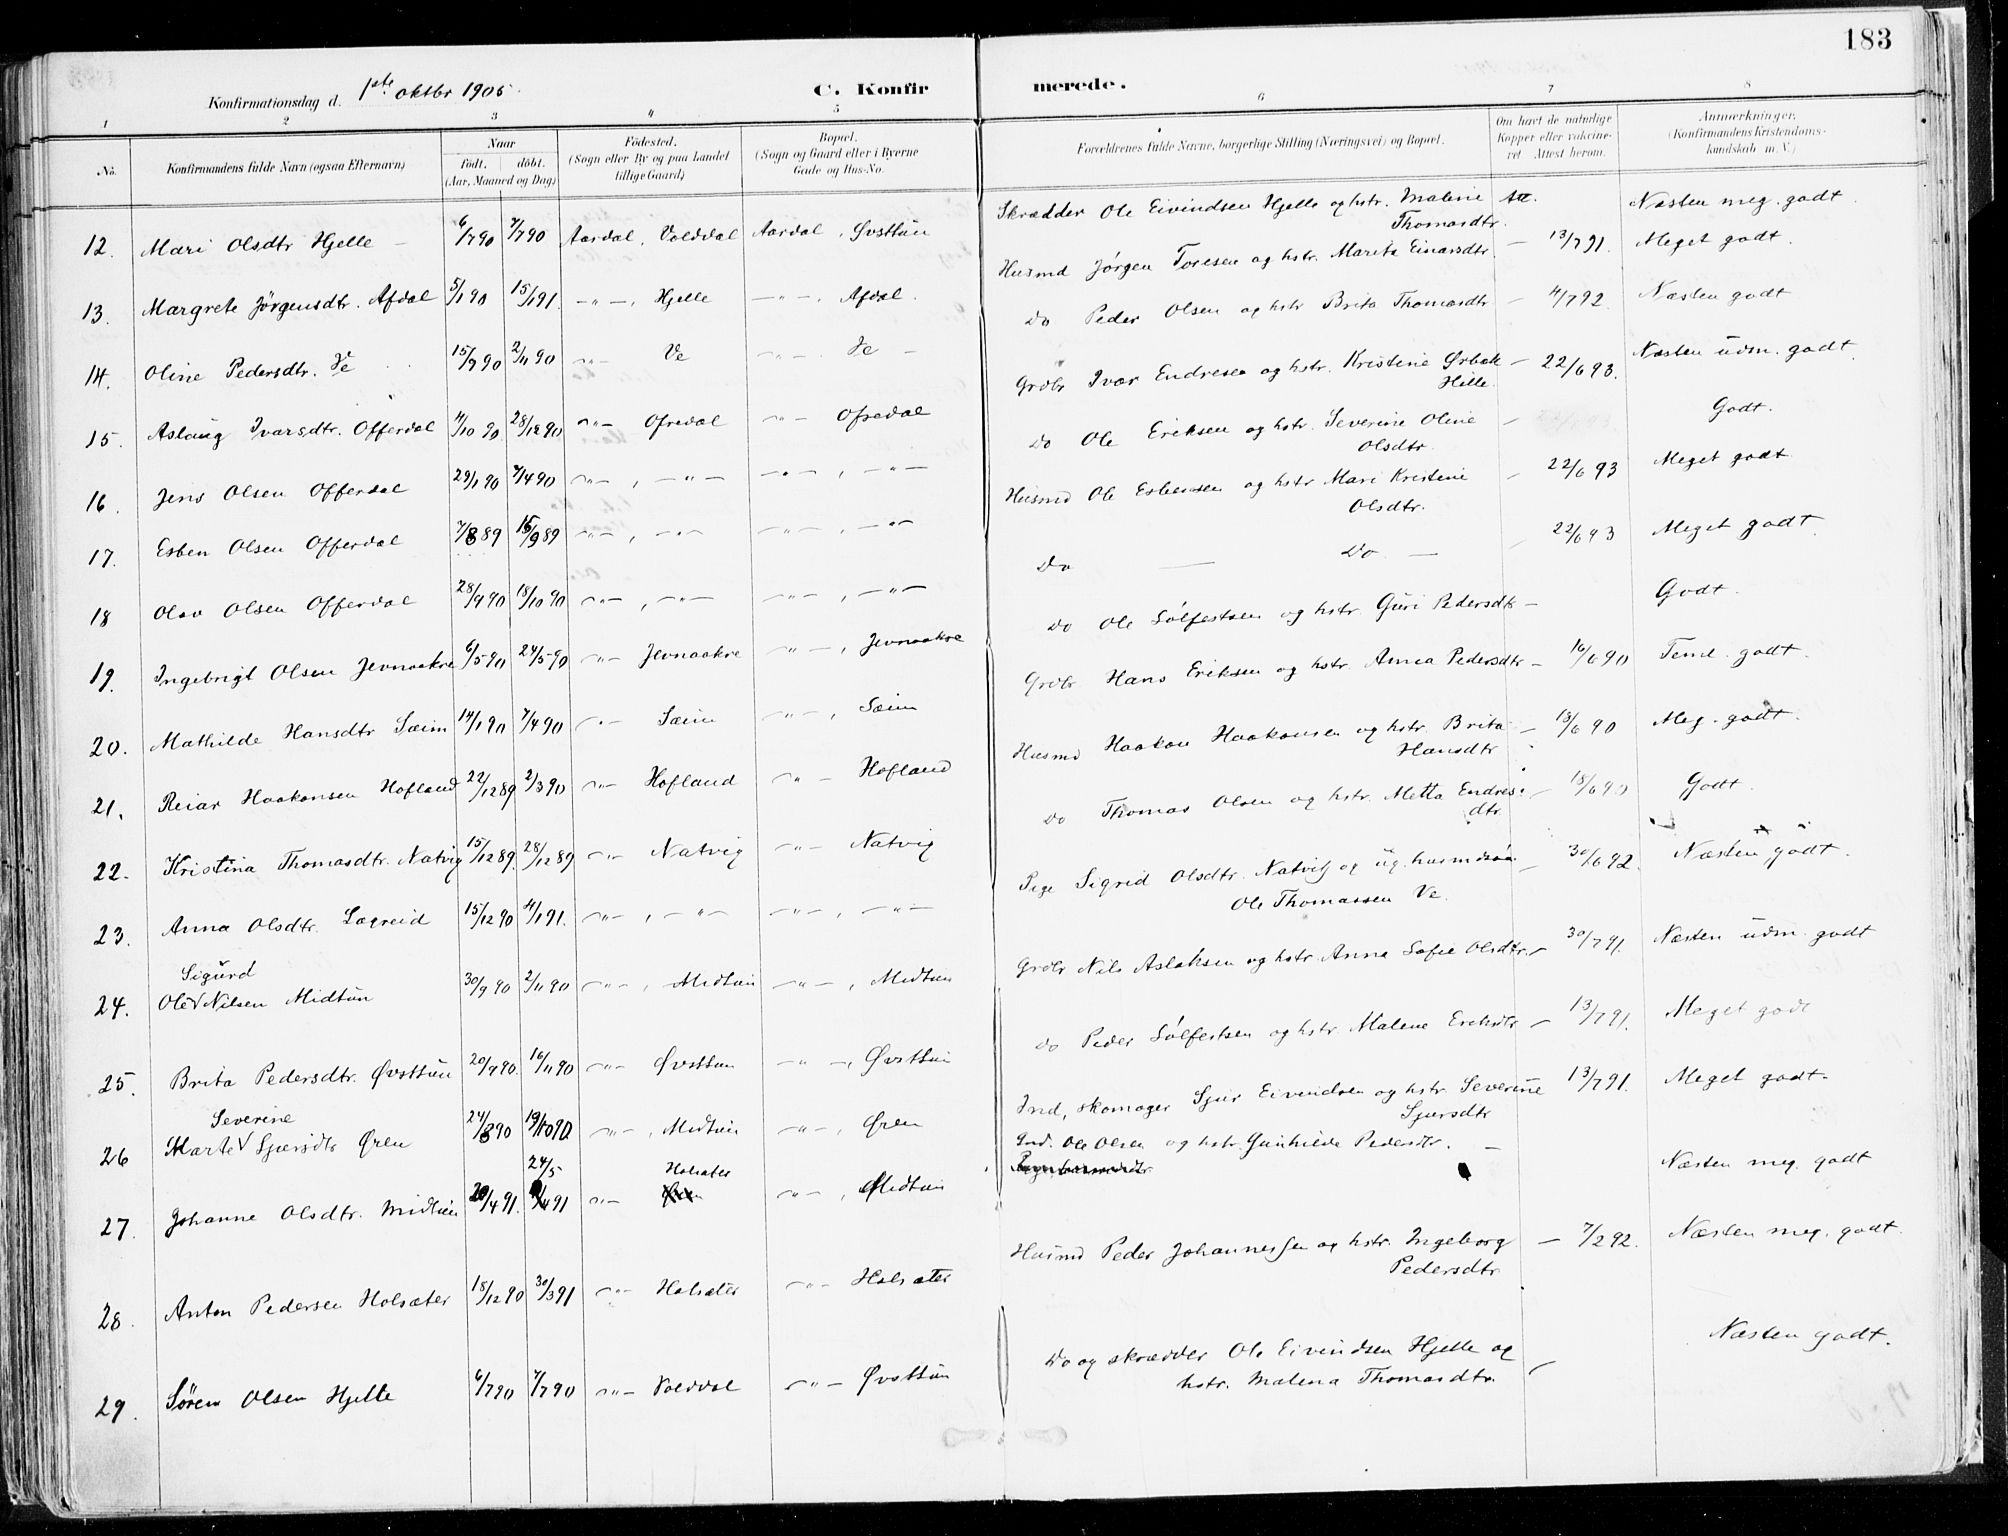 183
Konfirmationsdag d. 1ste oktbr 1905.
C. Konfirmerede.
1 2 3 4 5 6 7 8
No. Konfirmandens fulde Navn (ogsaa Efternavn) Naar födt. döbt. (Aar, Maaned og Dag) Födested. (Sogn eller By og paa Landet tillige Gaard) Bopæl. (Sogn og Gaard eller i Byerne Gade og Hus-No. Forældrenes fulde Navne, borgerlige Stilling (Næringsvei) og Bopæl. Om havt de naturlige Kopper eller vakcineret. Attest herom. Anmærkninger. (Konfirmandens Kristendomskundskab m. V.)
12. Mari Olsdtr Hjelle 6/7 90 7/7 90 Aardal, Volddal Aardal, Øvsttun Skrædder Ole Eivindsen Hjelle og hstr. Malene Thomasdtr. Næsten meg. godt
13. Margrete Jørgensdtr. Afdal 5/1 90 15/1 91. -"-, Hjelle -"-, Afdal. Husmd Jørgen Toresen og hstr. Marita Einarsdtr. - 13/7 91. Meget godt.
14. Oline Pedersdtr. Ve 15/9 90 2/11 90 -"- Ve -"- Ve Do Peder Olsen og hstr Brita Thomasdtr - 4/7 92. Næsten godt
15. Aslaug Ivarsdtr. Offerdal 4/10 90. 28/12 90 -"- Ofredal -"- Ofredal Grdbr Ivar Endresen og hstr. Kristine Ørbæk Hille. - 22/6 93. Næsten udm. godt.
16. Jens Olsen Offerdal 29/1 90 7/4 90 -"-, -"- -"-, -"- Do Ole Eriksen og hstr. Severine Oline Olsdtr. - Godt.
17. Esben Olsen Offerdal 7/8 89 15/9 89 -"-, -"- -"-, -"- Husmd Ole Esbensen og hstr Mari Kristine Olsdtr. - 22/6 93 Meget godt
18 Olav Olsen Offerdal 28/9 90 18/10 90 -"-, -"- -"-, -"- Do — Do — 22/6 93 Meget godt.
19. Ingebrigt Olsen Jevnaakre 6/5 90 24/5 90 -"- Jevnaakre -"-, Jevnaakre Do Ole Sølfestsen og hstr. Guri Pedersdtr - Godt.
20. Mathilde Hansdtr Sæim 14/1 90 7/4 90 -"- Sæim -"-, Sæim Grdbr Hans Eriksen og hstr. Anna Pedersdtr - 16/6 90 Teml. godt.
21. Reiar Haakonsen Hofland 22/12 89 2/3 90 -"- Hofland -"- Hofland Husmd Haakon Haakonsen og hstr. Brita Hansdtr - 13/6 90 Meg. godt.
22. Kristina Thomasdtr. Natvig 15/12 89. 28/12 89 -"- Natvig -"- Natvig Do Thomas Olsen og hstr. Metta Endresdtr. - 18/6 90 Godt.
23. Anna Olsdtr. Lægreid 15/12 90 4/1 91. -"-, -"- -"-, -"- Pige Sigrid Olsdtr. Natvig og ug. husmdsøn Ole Thomassen Ve. - 30/6 92. Næsten godt.
24. Ole Sigurd Nilsen Midtun 30/9 90 2/11 90 -"-, Midtun -"-, Midtun Grdbr Nils Aslaksen og hstr Anna Sofie Olsdtr. - 30/7 91. Næsten udm. godt
25. Brita Pedersdtr. Øvsttun 20/9 90. 16/11 90 -"- Øvsttun -"-, Øvsttun Do Peder Sølfestsen og hstr. Malene Eriksdtr - 13/7 91. Meget godt
26 Marte Severine Sjursdtr Øren 24/8 90 19/10 90 -"-, Midtun -"-, Øren Ind, skomager Sjur Eivindsen og hstr Severine Sjursdtr 13/7 91. Meget godt.
27. Johanne Olsdtr. Midtun 20/4 91. 24/5 91 -"- Holsæter -"-, Midtun Ind. Ole Olsen og hstr. Gunhilde Pedersdtr. - Næsten meg. godt
28. Anton Pedersen Holsæter 18/12 90 30/3 91 -"- Holsæter -"- Holsæter Husmd Peder Johannessen og hstr. Ingeborg Pedersdtr - 7/2 92. Næsten meg. godt.
29. Søren Olsen Hjelle 6/7 90 7/7 90 -"- Volddal -"- Øvsttun Do og skrædder Ole Eivindsen Hjelle og hstr. Malena Thomasdtr. - Næsten godt.